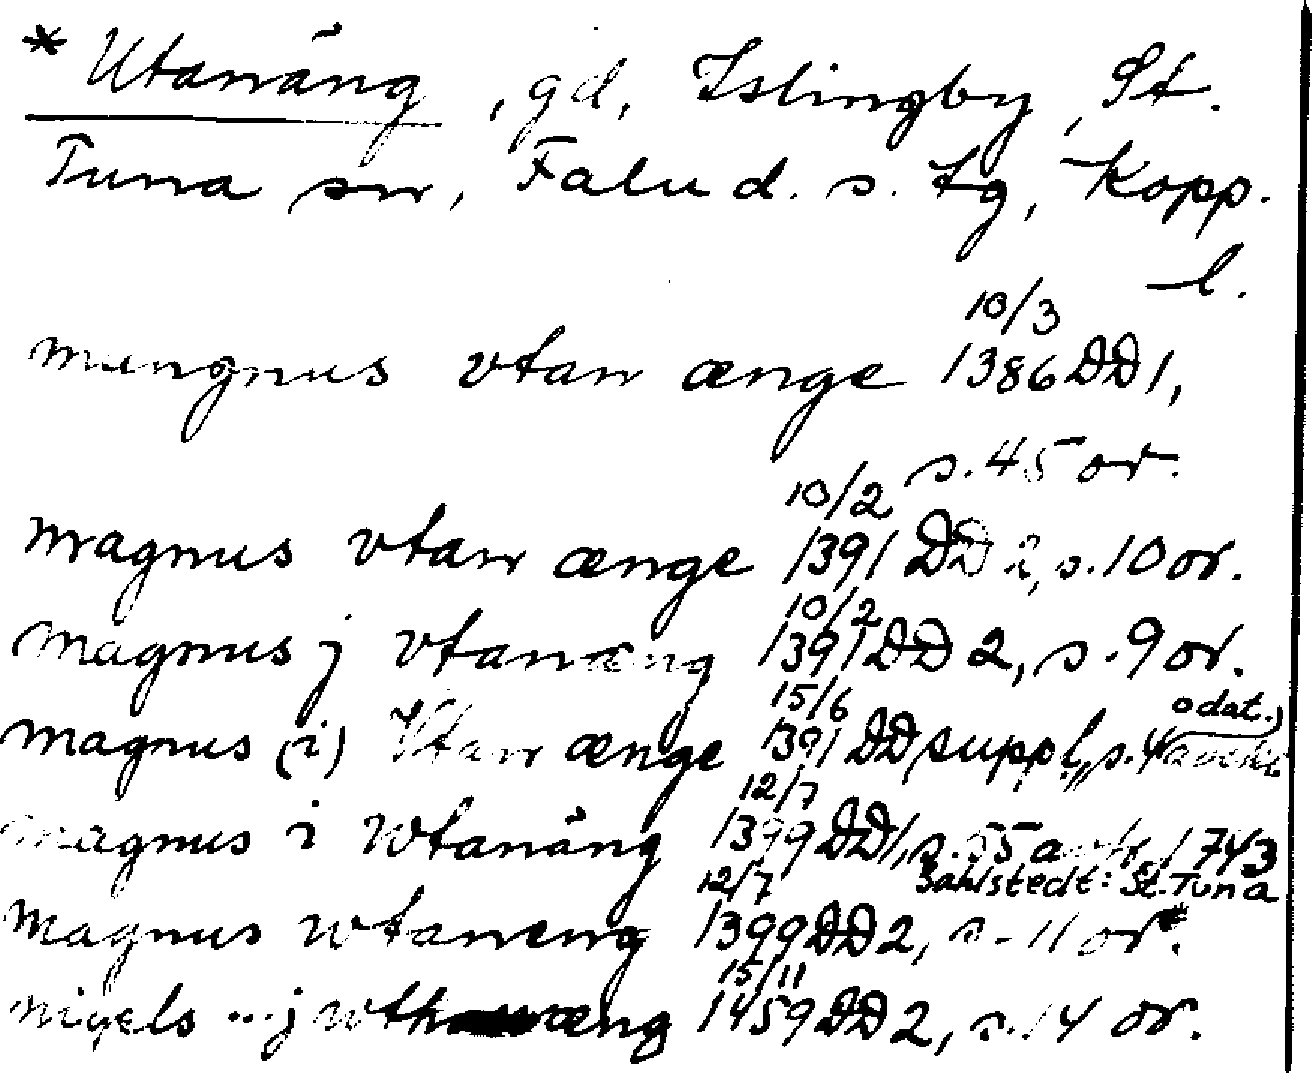 * Utanäng, gd, Islingby, St.
Tuna sn, Falu d. s. tg, Kopp.
l.
10/3
mangnus vtan ænge 1386 DD 1,
s. 45 or.
10/2
magnus vtan ænge 1391 DD 2, s. 10 or.
10/2
magnus j vtanæng 1391 DD 2, s. 9 or.
15/6 odat.)
magnus (i) Vtan ænge 1391 DD suppl, s. 4
12/7
magnus i Wtanäng 1399 DD 1, s. 55 avskr. 1743
12/7 Sahlstedt: St. Tuna
magnus wtaneng 1399 DD 2, s. 11 or*.
15/11
nigels ... j wthanæng 1459 DD 2, s. 14 or.